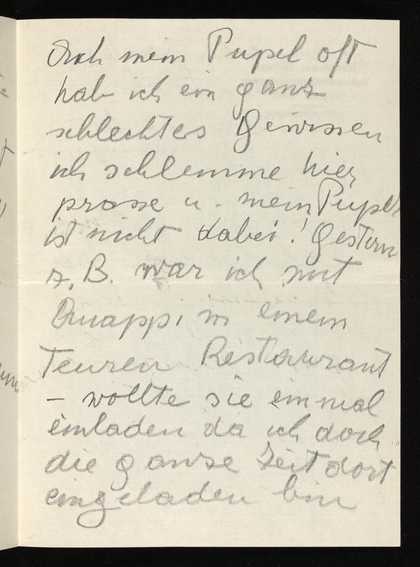 Ach mein Pupel oft
hab ich ein ganz
schlechtes Gewissen
ich schlemme hier
prasse u. mein Pupel
ist nicht dabei! Gestern
z. B. war ich mit
Quappi in einem
teuren Restaurant
– wollte sie einmal
einladen da ich doch
die ganze Zeit dort
eingeladen bin